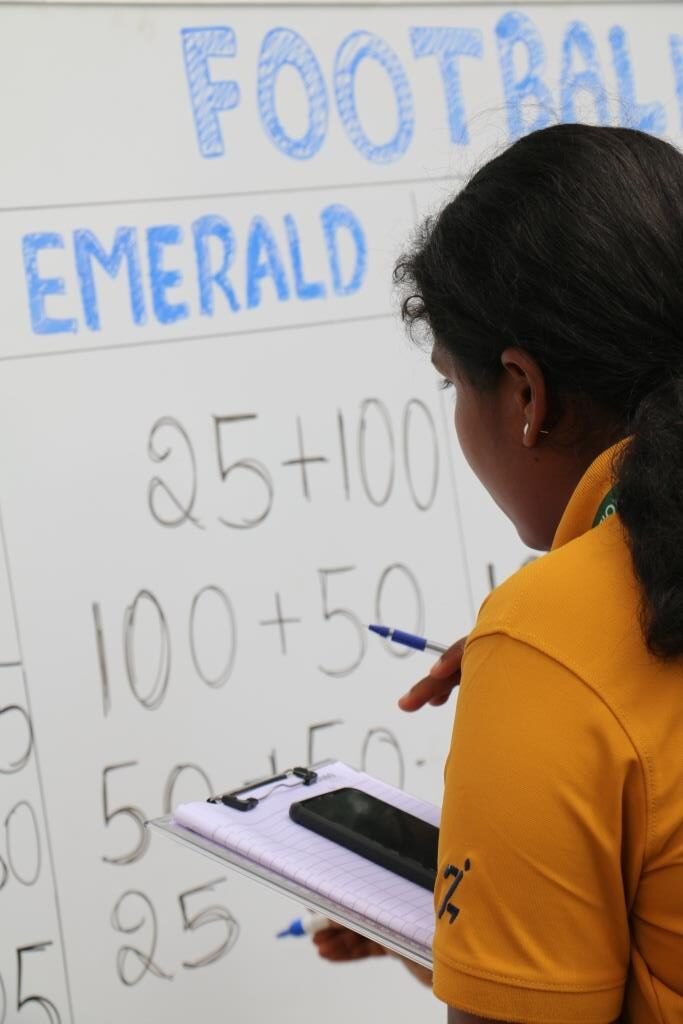 FOOTBALL
EMERALD
25+100
100+50
50+50
25